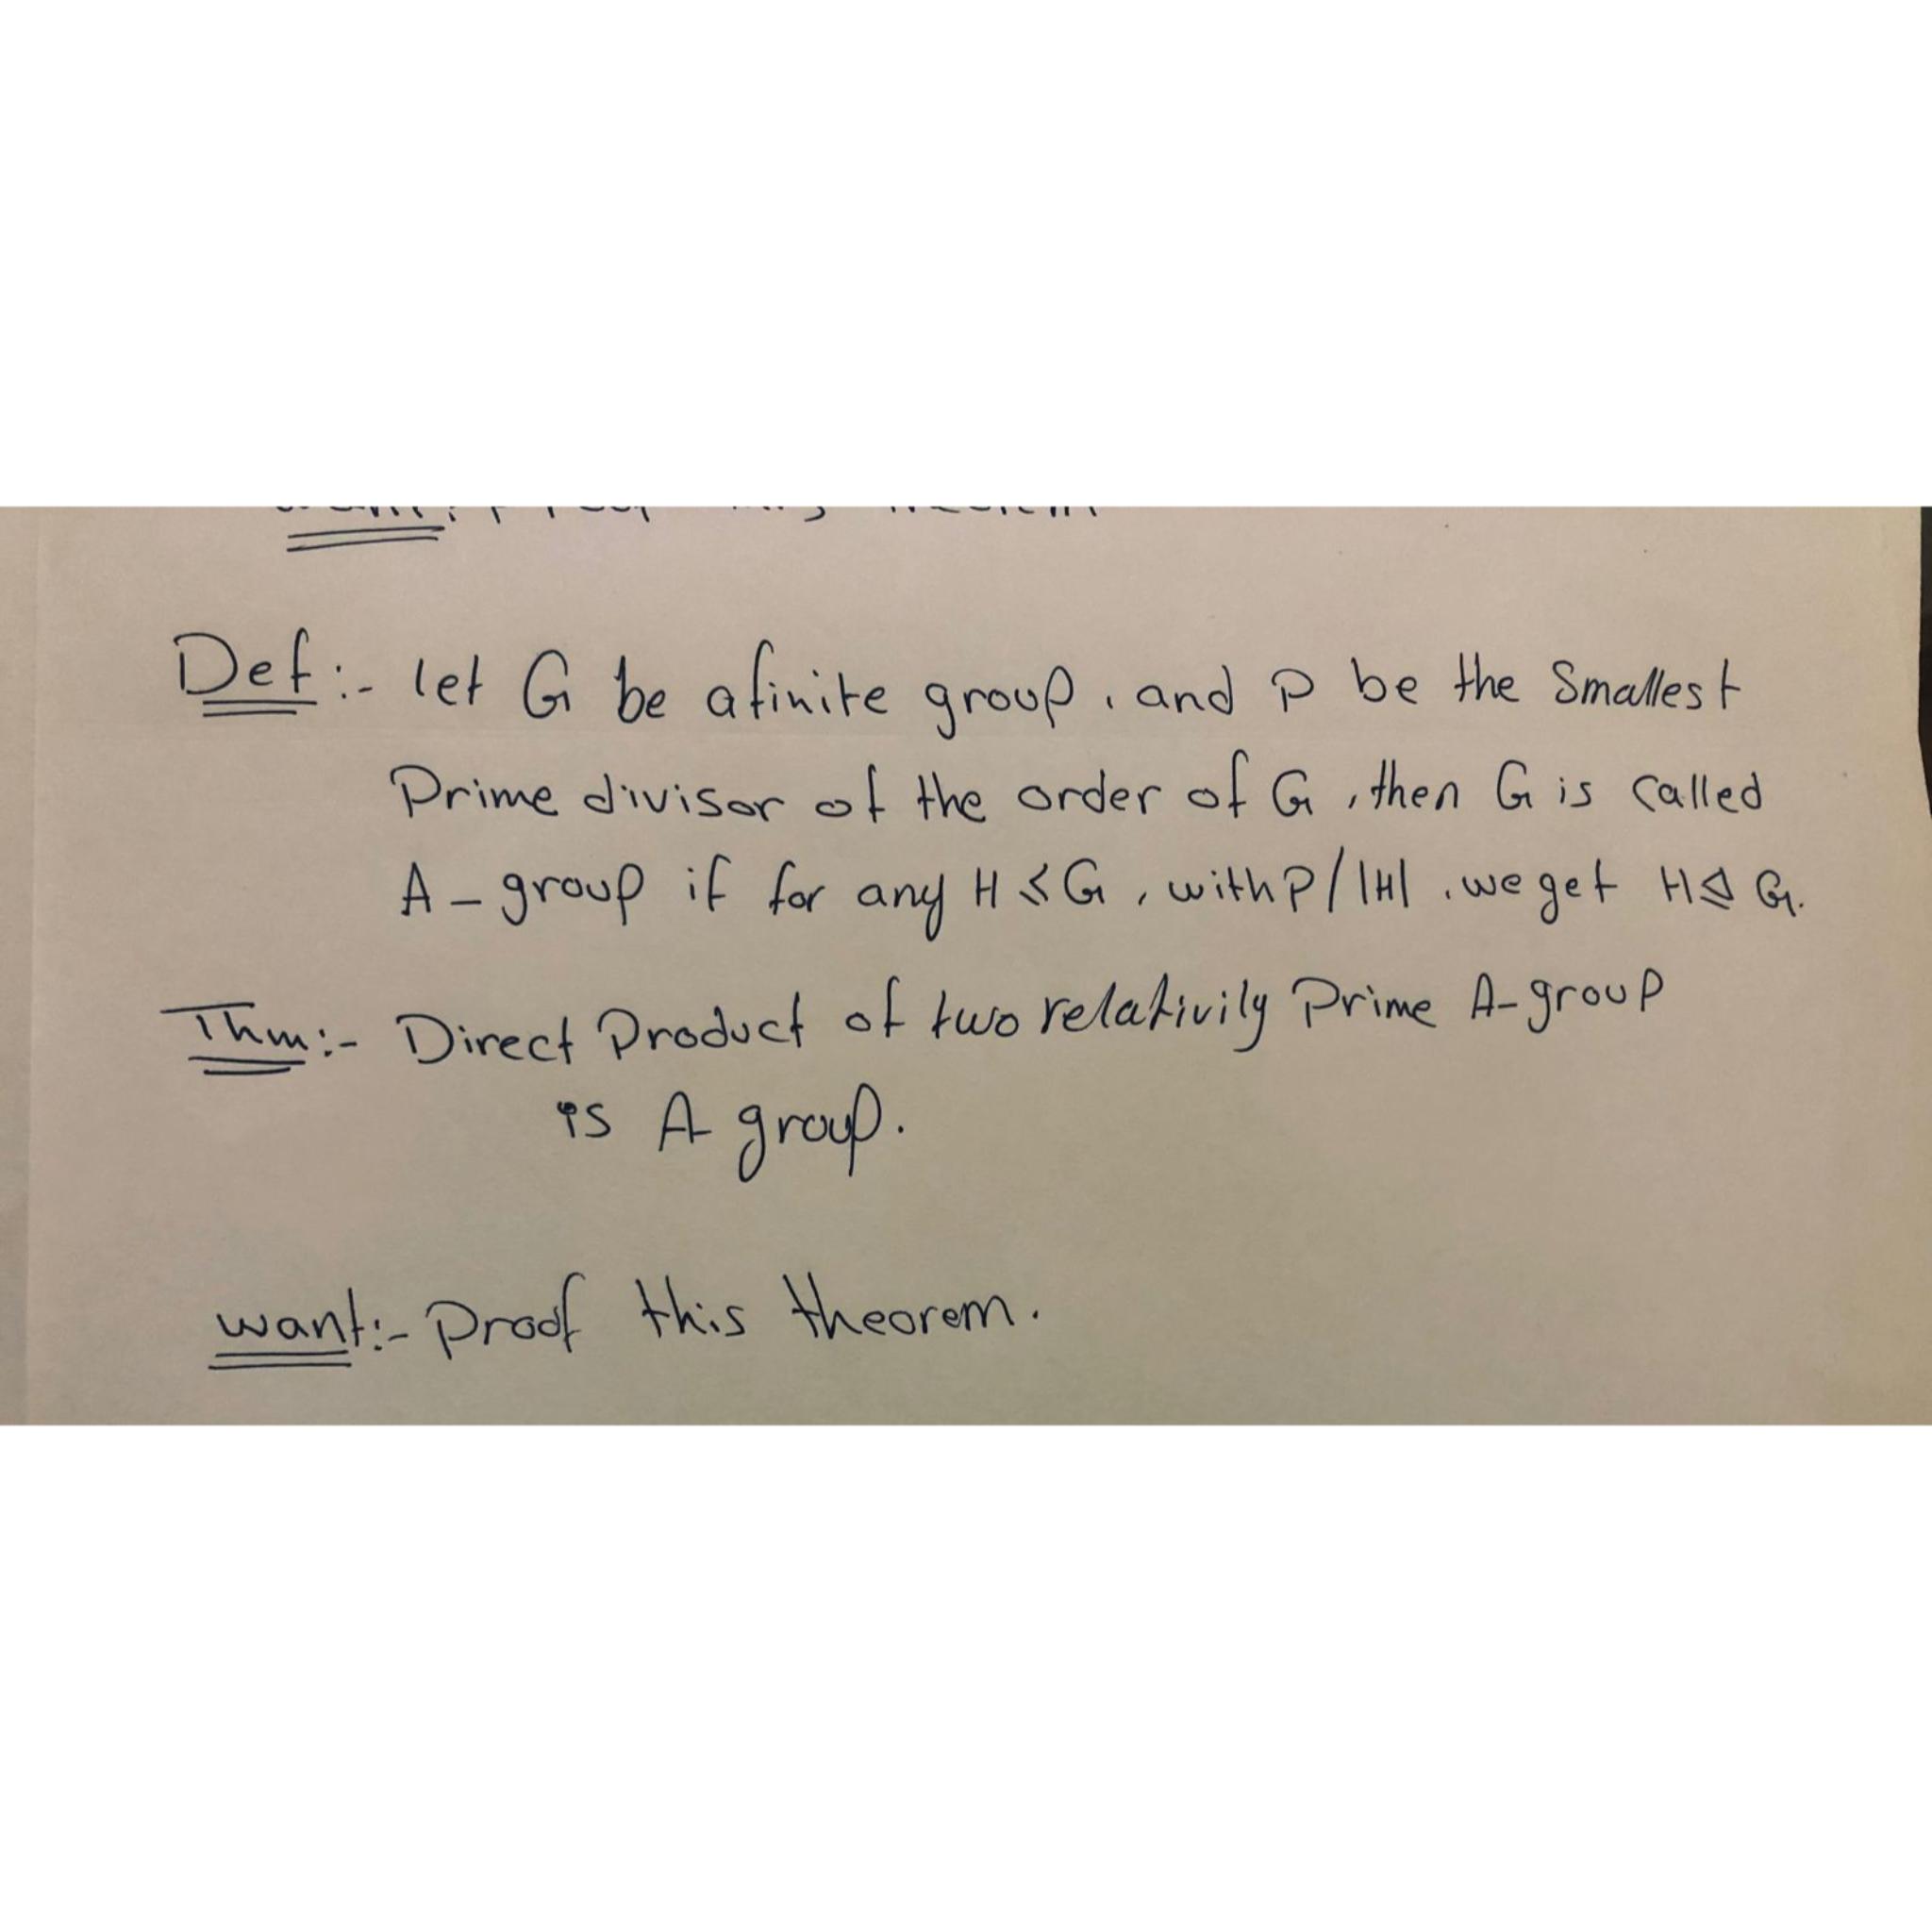 Def:- let G be afinite group, and P be the Smallest
Prime divisor of the order of G, then G is called
A-group if for any H ≤ G, with P/|H|, we get H ⊴ G.
Thm:- Direct Product of two relativily Prime A-group
is A group.
want:- Proof this theorem.